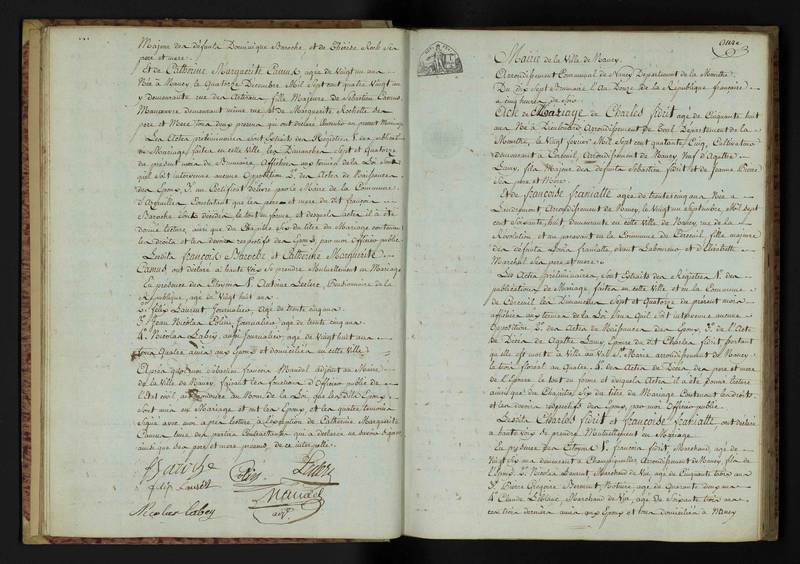 Majeur des défunts Dominique Baroche, et de Thérèse Roch ses
père et mere.
Et de Catherine Marguerite Camus agée de Vingt un ans
Née à Nancy le Quatorze Decembre Mil Sept cent Quatre Vingt un
y demeurante rue des Artisans fille Majeure de Sebastien Camus
Manoeuvre demeurant même rue et de Marguerite Rochette ses
père et Mere tous deux présens qui ont déclaré consentir au présent Mariage
Les Actes préliminaires sont Extraits des Registres 1° des publications
de Mariage faites en cette Ville les Dimanches Sept et Quatorze
du présent mois de Brumaire, Affichées aux termes de la Loi sans
qu'il soit intervenu aucune Opposition 2° des Actes de Naissance
des Epoux 3° un Certificat délivré par le Maire de la Commune
Constatant que les père et mere de dit françois
Baroche sont décédés le tout en forme et desquels actes il a été
donné lecture, ainsi que du Chapitre Six du titre du Mariage contenant
les droits et les devoirs respectifs des Epoux, par moi Officier public
Lesdits françois Baroche et Catherine Marguerite
Camus ont déclaré à haute Voix se prendre Mutuellement en Mariage
En présence des Citoyens 1° Antoine Leclerc, Pensionnaire de la
République, agé de Vingt huit ans
2° félix Laurent Journalier, Agé de trente cinq ans
3° Jean Nicolas Colin, Journalier, agé de trente cinq ans
4° Nicolas Labey, aussi Journalier, agé de Vingt huit ans
tous Quatre amis aux Epoux et domiciliés en cette Ville
Après quoi moi Sebastien françois Mandel adjoint au Maire
de la Ville de Nancy, faisant les fonctions d'Officier public de
l'Etat civil, ai prononcé au Nom de la Loi, que lesdits Epoux
sont unis en Mariage et ont les Epoux, et les quatre témoins
Signé avec moi après lecture à l'exception de Catherine Marguerite
Camus l'une des parties Contractantes qui a déclaré ne savoir Signer
ainsi que ses père et mere, présens, de ce interpellés.
Baroche
Colin
félix Laurent
Mandel
adjt
Nicolas Labey
Onze
Mairie de la Ville de Nancy.
Arrondissement Communal de Nancy Departement de la Meurthe
Du dix Sept Brumaire l'An Douze de la République françoise
a cinq heures du soir
Acte de Mariage de Charles fidrit agé de Cinquante huit
ans Né à Arrondissement de Toul Departement de la
Meurthe, le Vingt fevrier Mil Sept cent quarante Cinq, Cultivateur
demeurant à Cercueil, Arrondissement de Nancy Veuf d'Agathe
Louis, fils Majeur des défunts Sebastien fidrit et de Jeanne Pierre
Ses père et Mere.
Et de françoise franiatte agée de trente cinq ans Née à
Arrondissement de Nancy, le Vingt un Septembre, Mil Sept
cent Soixante huit, demeurante en cette Ville de Nancy, rue de la
Révolution et au présent en la Commune de Cercueil, fille majeure
des défunts Louis franiatte, vivant Laboureur et d'Elisabeth
Marchal Ses père et mere.
Les Actes préliminaires, sont Extraits des Registres 1° des
publications de Mariage faites en cette Ville et en la Commune
de Cercueil les Dimanches Sept et Quatorze du présent mois
affichées aux termes de la Loi sans qu'il soit intervenu aucune
Opposition 2° des Actes de Naissance des Epoux, 3° de l'Acte
de Décès de Agathe Louis Epouse du dit Charles fidrit portant
qu'elle est morte à Ville au Val Ste Marie arrondissement de Nancy
4° des Actes de Décès des père et mere
de l'Epouse le tout en forme et desquels Actes il a été donné lecture
ainsi que du Chapitre Six du titre du Mariage Contenant les droits
et les devoirs respectifs des Epoux, par moi Officier public
Lesdits Charles fidrit et françoise franiatte, ont déclaré
a haute voix se prendre Mutuellement en Mariage
En présence des Citoyens 1° françois fidrit Marchand, agé de
Vingt Six ans demeurant à Champigneulles, Arrondissement de Nancy, fils de
l'Epoux 2° Nicolas Laurent, Marchand de Vin, agé de Cinquante trois ans
3° Pierre Grégoire Notaire, agé de Quarante deux ans
4° Claude Leblanc Marchand de Vin, agé de Soixante trois ans
ces trois derniers amis aux Epoux et tous domiciliés à Nancy